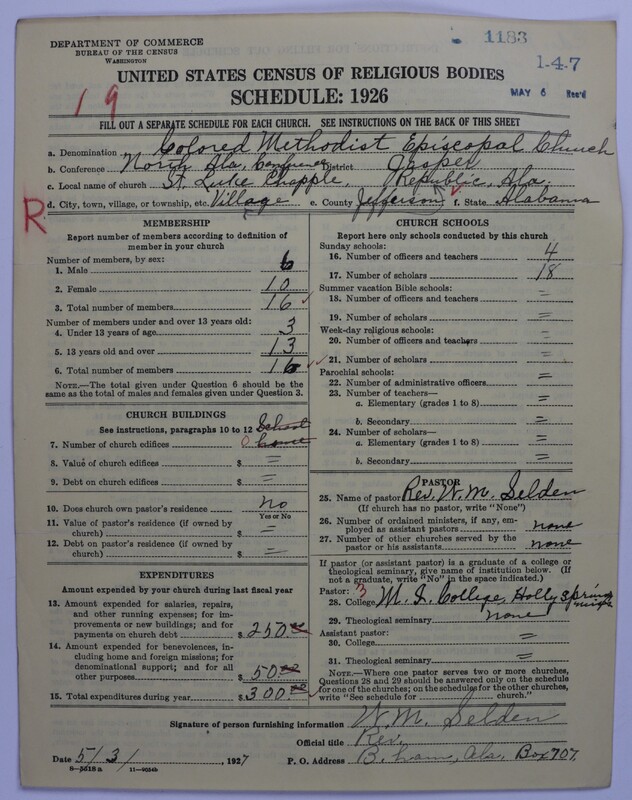 1183
DEPARTMENT OF COMMERCE
BUREAU OF THE CENSUS
WASHINGTON
1-4-7
UNITED STATES CENSUS OF RELIGIOUS BODIES
MAY 6 Rec'd
SCHEDULE: 1926
19
FILL OUT A SEPARATE SCHEDULE FOR EACH CHURCH. SEE INSTRUCTIONS ON THE BACK OF THIS SHEET
a. Denomination Colored Methodist Episcopal Church
b. Conference North Ala. Conference District Jasper
c. Local name of church St. Luke Chapple, Republic, Ala.
d. City, town, village, or township, etc. Village e. County Jefferson f. State Alabama
R
MEMBERSHIP
Report number of members according to definition of
member in your church
Number of members, by sex:
1. Male 6
2. Female 10
3. Total number of members 16
Number of members under and over 13 years old:
4. Under 13 years of age 3
5. 13 years old and over 13
6. Total number of members 16
NOTE.—The total given under Question 6 should be the
same as the total of males and females given under Question 3.
CHURCH BUILDINGS
See instructions, paragraphs 10 to 12 School
7. Number of church edifices 0 house
8. Value of church edifices $ =
9. Debt on church edifices $ =
10. Does church own pastor's residence? no
Yes or No
11. Value of pastor's residence (if owned by
church) $ =
12. Debt on pastor's residence (if owned by
church) $ =
EXPENDITURES
Amount expended by your church during last fiscal year
13. Amount expended for salaries, repairs,
and other running expenses; for im-
provements or new buildings; and for
payments on church debt $ 250.00
14. Amount expended for benevolences,
including home and foreign missions; for
denominational support; and for all
other purposes $ 50.00
15. Total expenditures during year $ 300.00
CHURCH SCHOOLS
Report here only schools conducted by this church
Sunday schools:
16. Number of officers and teachers 4
17. Number of scholars 18
Summer vacation Bible schools:
18. Number of officers and teachers =
19. Number of scholars =
Week-day religious schools:
20. Number of officers and teachers =
21. Number of scholars =
Parochial schools:
22. Number of administrative officers =
23. Number of teachers—
a. Elementary (grades 1 to 8) =
b. Secondary =
24. Number of scholars—
a. Elementary (grades 1 to 8) =
b. Secondary =
PASTOR
25. Name of pastor Rev. W. M. Selden
(If church has no pastor, write "None")
26. Number of ordained ministers, if any, em-
ployed as assistant pastors none
27. Number of other churches served by the
pastor or his assistants none
If pastor (or assistant pastor) is a graduate of a college or
theological seminary, give name of institution below. (If
not a graduate, write "No" in the space indicated.)
Pastor: 3
28. College M. I. College, Holly Springs
29. Theological seminary none
Assistant pastor:
30. College =
31. Theological seminary =
NOTE.—Where one pastor serves two or more churches,
Questions 28 and 29 should be answered only on the schedule
for one of the churches; on the schedules for the other churches,
write "See schedule for ........ church."
Signature of person furnishing information W. M. Selden
Official title Rev.
Date 5/3/, 1927 P. O. Address B. ham, Ala. Box 707.
8—5518a 11—9054b